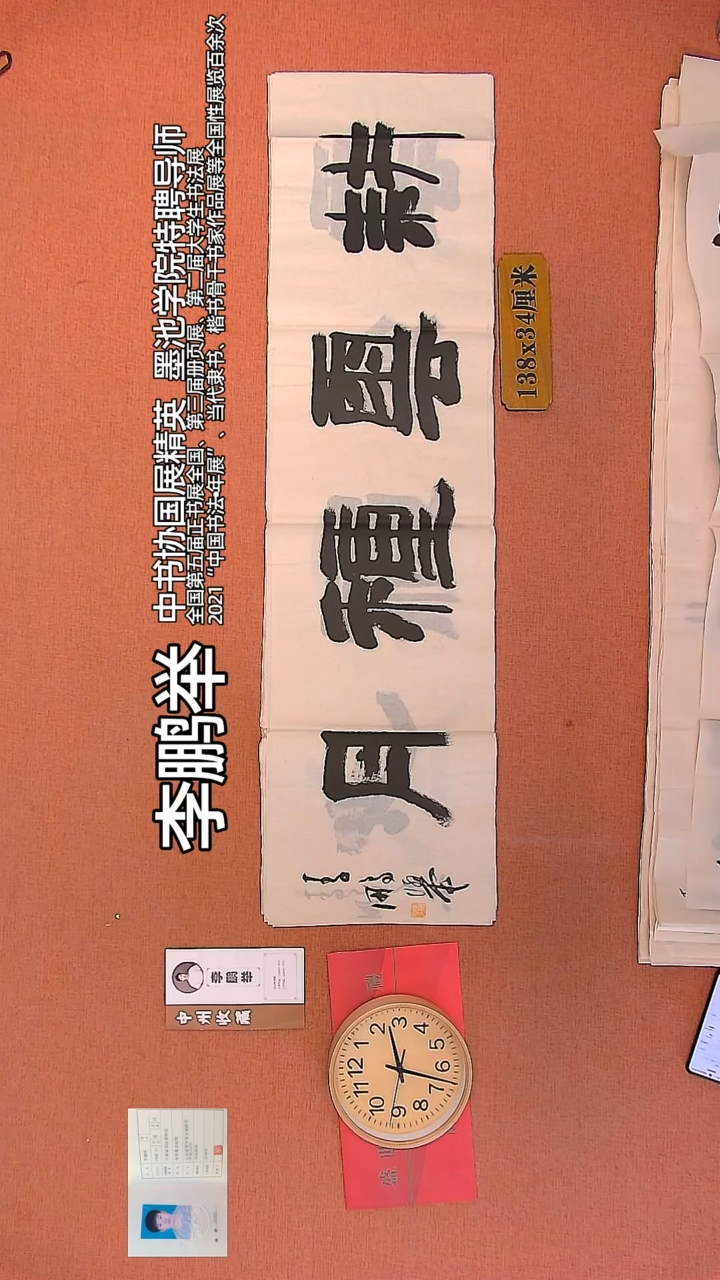 李鹏举
中书协国展精英 墨池学院特聘导师
全国第五届正书展全国、第三届册页展、第二届大学生书法展
2021“中国书法·年展”、当代隶书、楷书骨干书家作品展等全国性展览百余次
耕雲種月
李鹏举
138x34厘米
中州收藏
李鹏举
盛世
藏
12
1
2
3
4
5
6
7
8
9
10
11